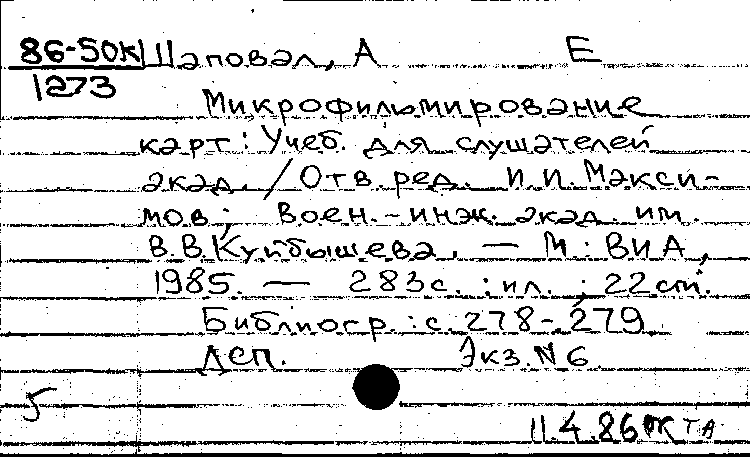 86-50к Шаповал, А Е
1273
Микрофильмирование
карт: Учеб. для слушателей
акад. / Отв. ред. И.И. Макси-
мов; Воен.-инж. акад. им.
В.В. Куйбышева. — М: ВИА,
1985. — 283с. : ил. ; 22см.
Библиогр.: с. 278-279.
ДСП. Экз. N 6
5
11.4.86